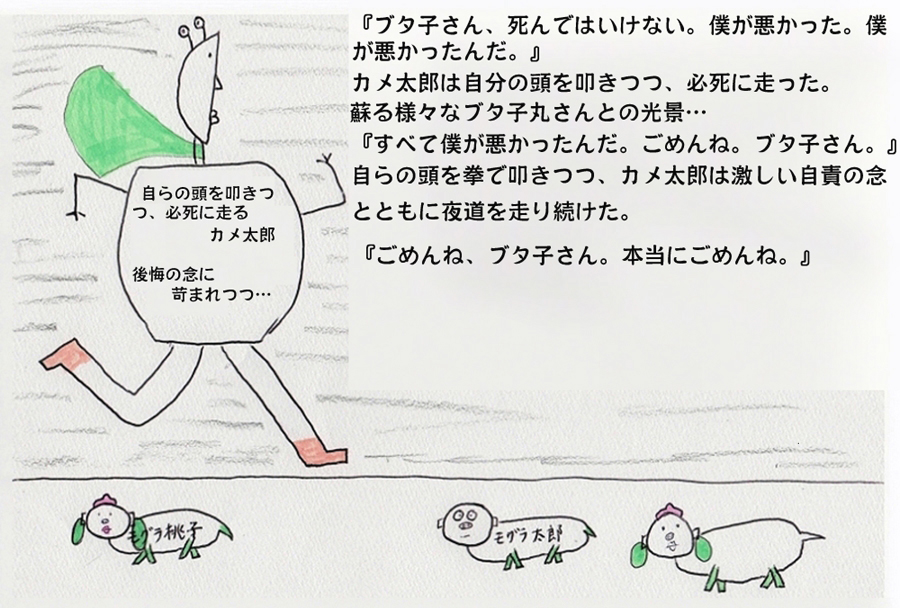 『ブタ子さん、死んではいけない。僕が悪かった。僕
が悪かったんだ。』
カメ太郎は自分の頭を叩きつつ、必死に走った。
蘇る様々なブタ子丸さんとの光景…
『すべて僕が悪かったんだ。ごめんね。ブタ子さん。』
自らの頭を拳で叩きつつ、カメ太郎は激しい自責の念
とともに夜道を走り続けた。
『ごめんね、ブタ子さん。本当にごめんね。』
自らの頭を叩きつ
つ、必死に走る
カメ太郎
後悔の念に
苛まれつつ…
モグラ桃子
モグラ太郎